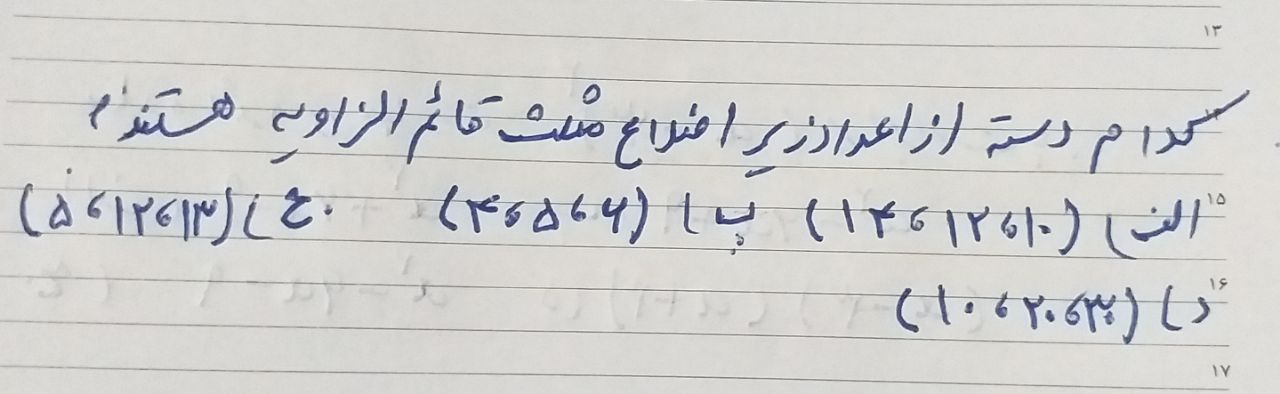 ۱۳
کدام دسته از اعداد زیر اضلاع مثلث قائم الزاویه هستند؟
۱۵ الف) (۱۰، ۱۲، ۱۴) ب) (۶، ۵، ۴) ج) (۱۳، ۱۲، ۵)
۱۶ د) (۳۰، ۲۰، ۱۰)
۱۷